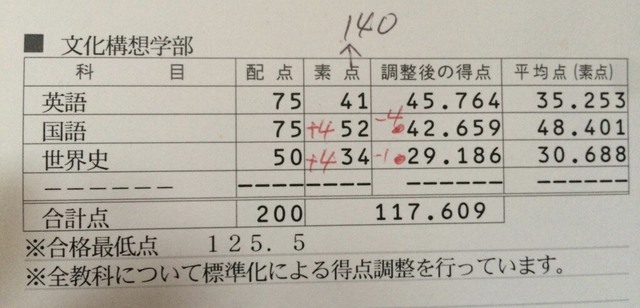 140
■ 文化構想学部
科 目 配点 素点 調整後の得点 平均点(素点)
英語 75 41 45.764 35.253
国語 75 +4 52 -4 42.659 48.401
世界史 50 +4 34 -1 29.186 30.688
------ ---- ---- ------ ------
合計点 200 117.609
※合格最低点 125.5
※全教科について標準化による得点調整を行っています。